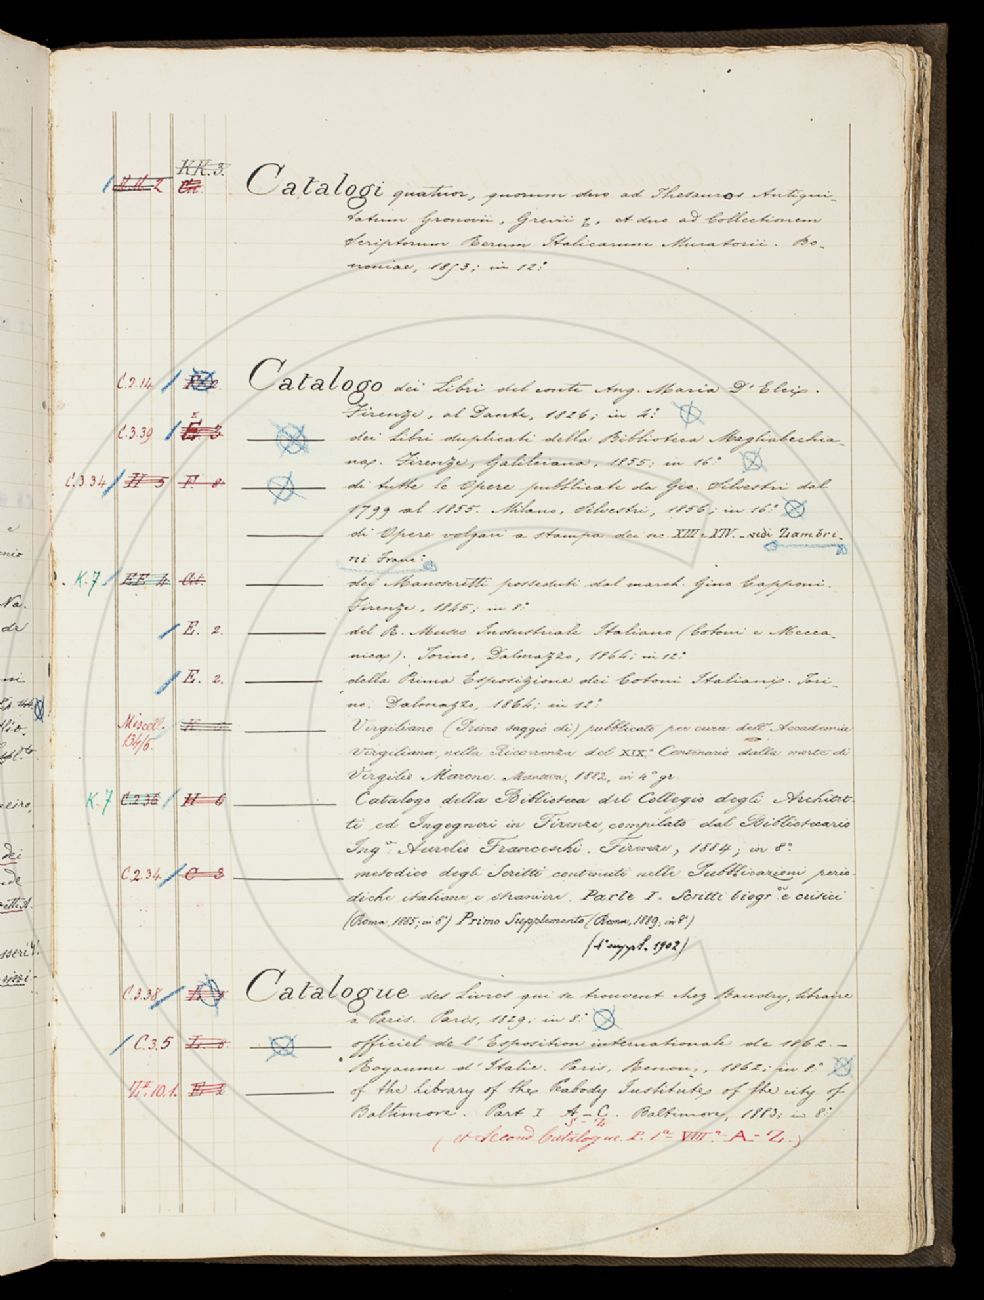 KK. 3.
Catalogi quatuor, quorum duo ad Thesauros Antiqui-
tatum Gronovii, Grevii &, et duo ad Collectionem
Scriptorum Rerum Italicarum Muratorii. Bo-
noniae, 1853; in 12.°
C.2.14 Catalogo dei Libri del conte Ang. Maria D'Elci.
Firenze, al Dante, 1826; in 4.°
C.3.39 dei libri duplicati della Biblioteca Magliabechia-
na. Firenze, Galileiana, 1855; in 16.°
C.3.34 H 5 F. 8 di tutte le Opere pubblicate da Gio. Silvestri dal
1799 al 1855. Milano, Silvestri, 1856; in 16.°
di Opere volgari a stampa dei sec. XIII e XIV. - vedi Zambri-
ni Franc.°
K.7 EE. 4 dei Manoscritti posseduti dal march. Gino Capponi.
Firenze, 1845; in 8.°
E. 2. del R. Museo Industriale Italiano (Cotoni e Mecca-
nica). Torino, Dalmazzo, 1864; in 12.°
E. 2. della Prima Esposizione dei Cotoni Italiani. Tori-
no. Dalmazzo, 1864; in 12.°
Miscell. Virgiliano (Primo saggio di) pubblicato per cura dell'Accademia
virgiliana, nella Ricorrenza del XIX.° Centenario dalla morte di
Virgilio Marone. Mantova, 1882, in 4° gr.
K.7 C.2.36 H 6 Catalogo della Biblioteca del Collegio degli Architet-
ti ed Ingegneri in Firenze, compilato dal Bibliotecario
Ing.r Aurelio Franceschi. Firenze, 1884; in 8.°
C.2.34 C 3 metodico degli Scritti contenuti nelle Pubblicazioni perio-
diche italiane e straniere. Parte I. Scritti biogr.ci e critici
(Roma, 1885; in 8°) Primo Supplemento (Roma, 1889, in 8°)
(4° suppl. 1902)
C.3.38 Catalogue des Livres qui se trouvent chez Baudry, libraire
à Paris. Paris, 1829; in 8.°
C.3.5 L. 8. officiel de l'Exposition internationale de 1862. -
Royaume d'Italie. Paris, Renou, 1862; in 8.°
10.1. of the library of the Peabody Institute of the city of
Baltimore. Part I A - C. Baltimore, 1883; in 8.°
(et Second Catalogue P. I.a - VIII.a - A - Z.)